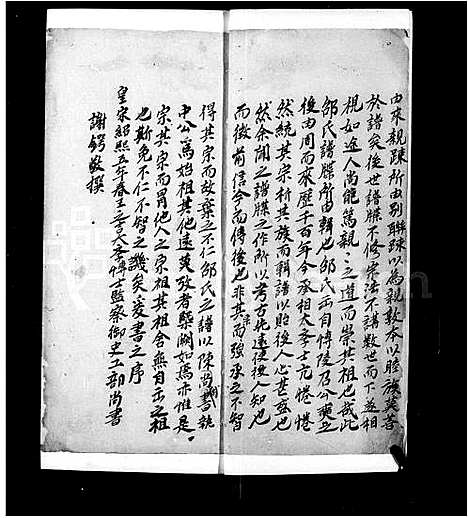 由來親疎所由别聯疎以為親敦本以睦族莫善
於譜矣後世譜牒不修宗法不講数世而下遂相
視如途人尚能篤親之道而崇其祖也哉此
邵氏譜牒所由輯也邵氏出自博陵乃公奭之
後由周而來歷千百年今承相太學士亢惓惓
然統其宗析其族而輯譜以貽後人心甚盛也
然余聞之譜牒之作所以考古先遠使後人知也
而徵前信今而傳後也非其宗而强承之不智
得其宗而故棄之不仁邵氏之譜以陳尚書執
中公為始祖其他遠莫攷者槩闕如焉亦惟是
宗其宗而不冒他人之宗祖其祖舍無自出之祖
也斯免不仁不智之譏矣爰書之序
皇宋紹熙五年春王之吉太學博士監察御史工部尚書
謝鍔敬撰